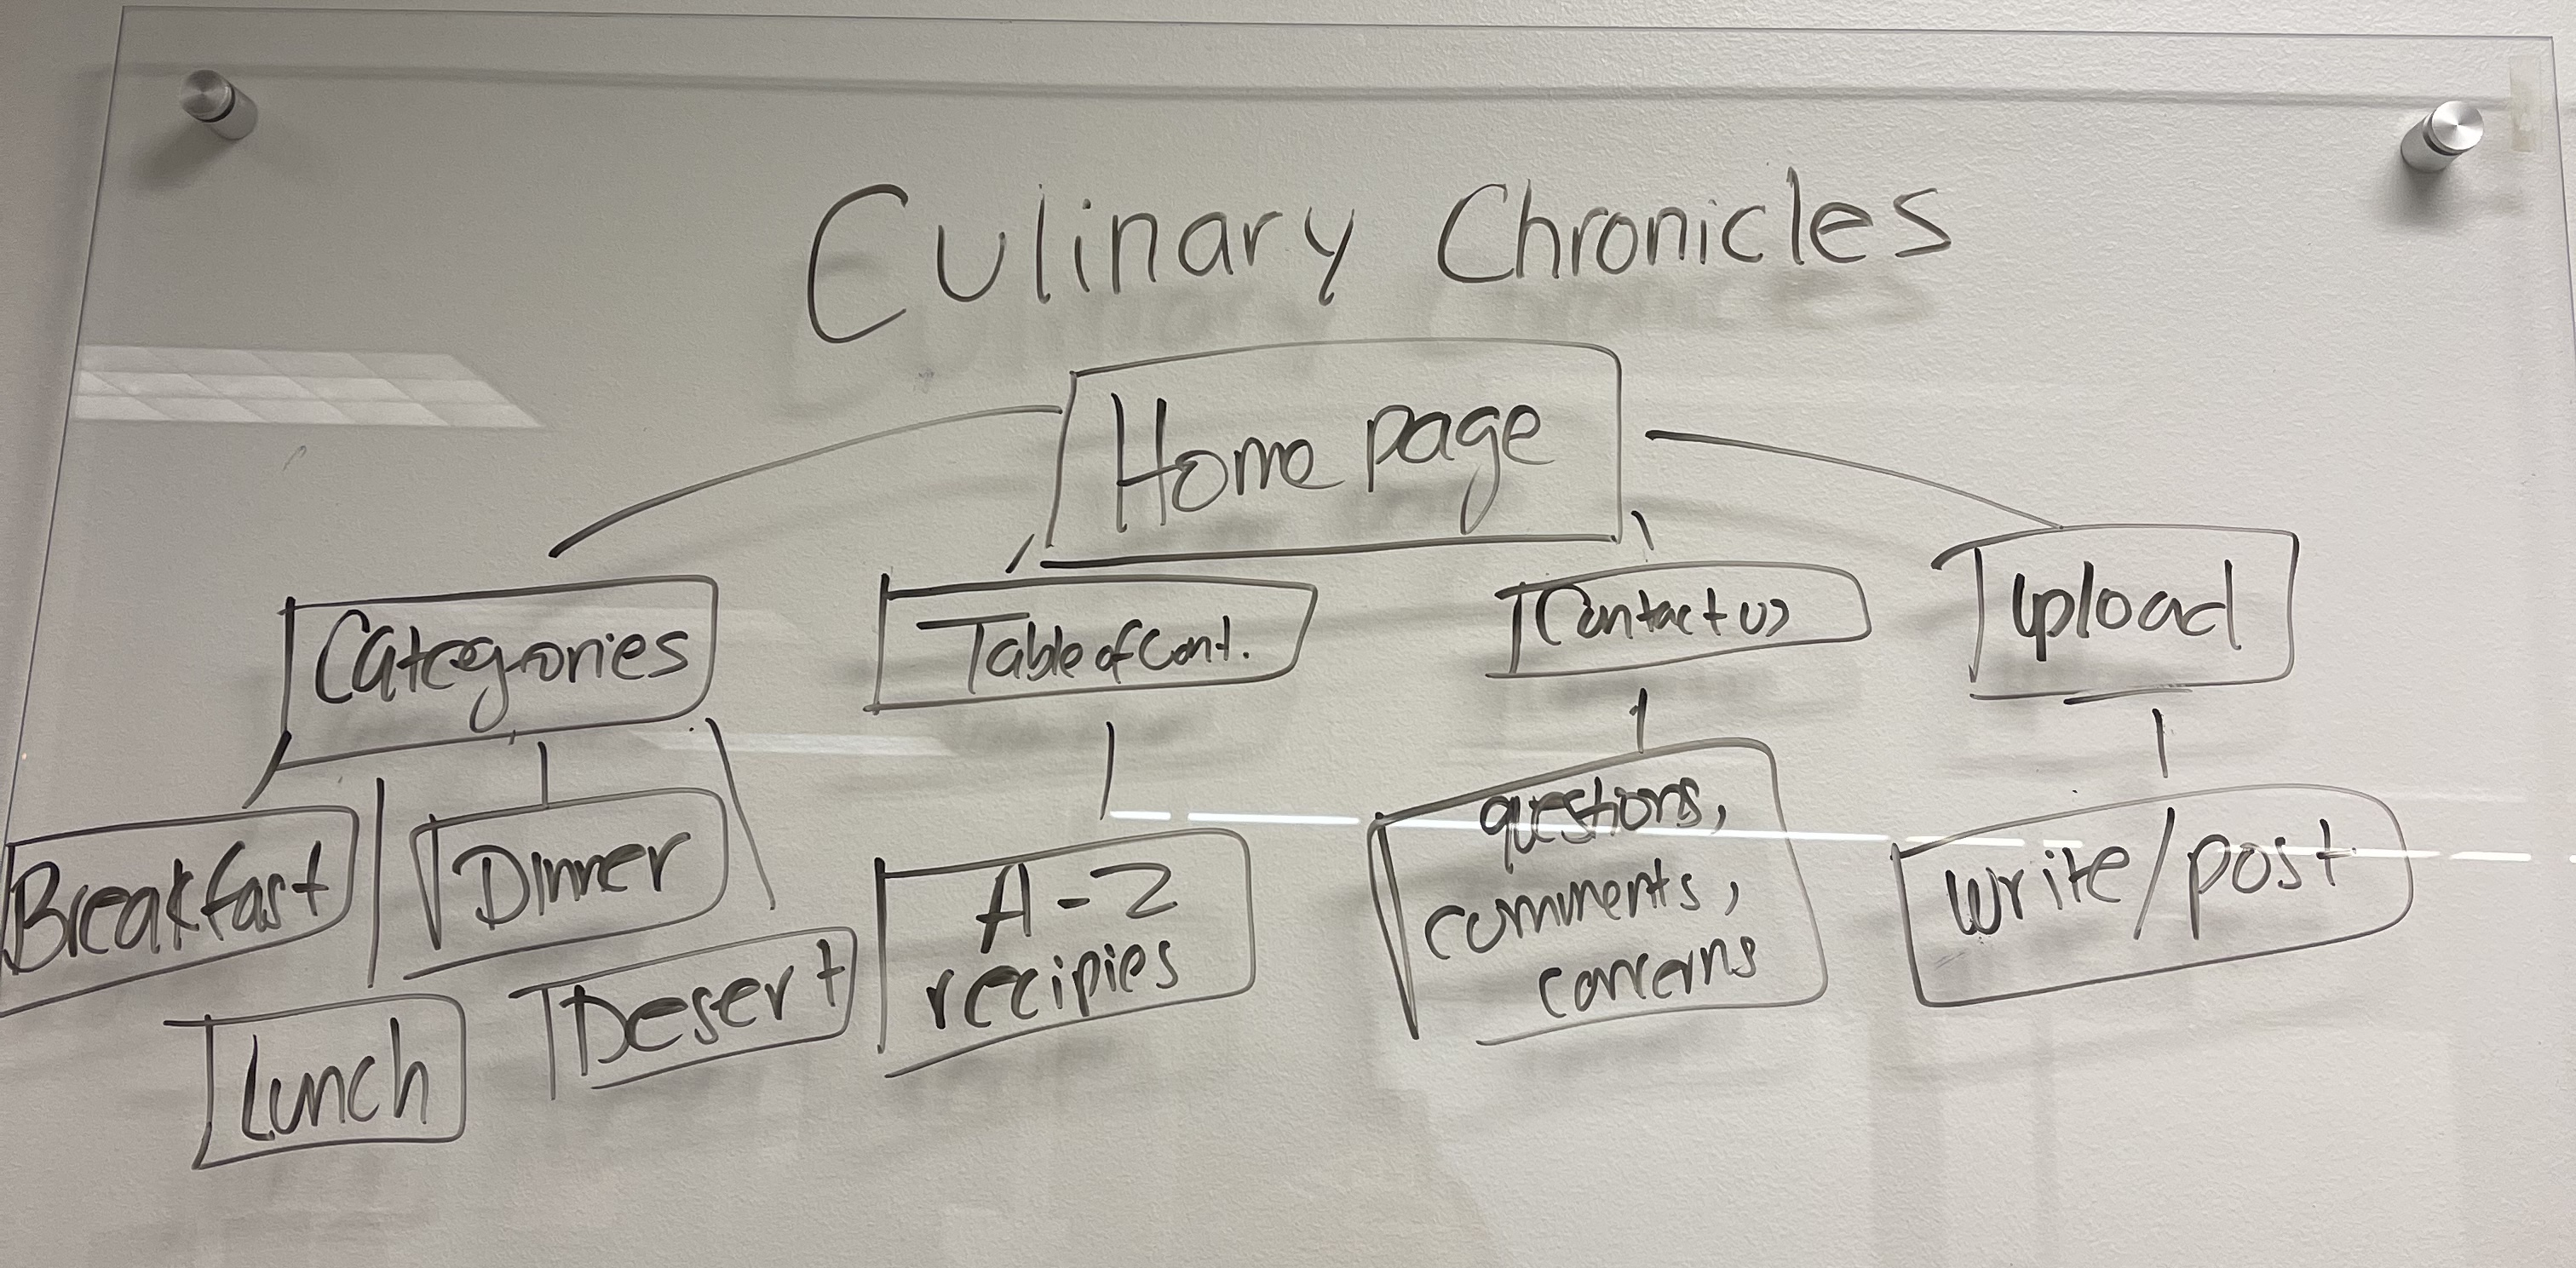 Culinary Chronicles
Home page
Categories
Table of Cont.
Contact us
Upload
Breakfast
Dinner
Lunch
Desert
A-Z
recipies
questions,
comments,
concerns
write/post